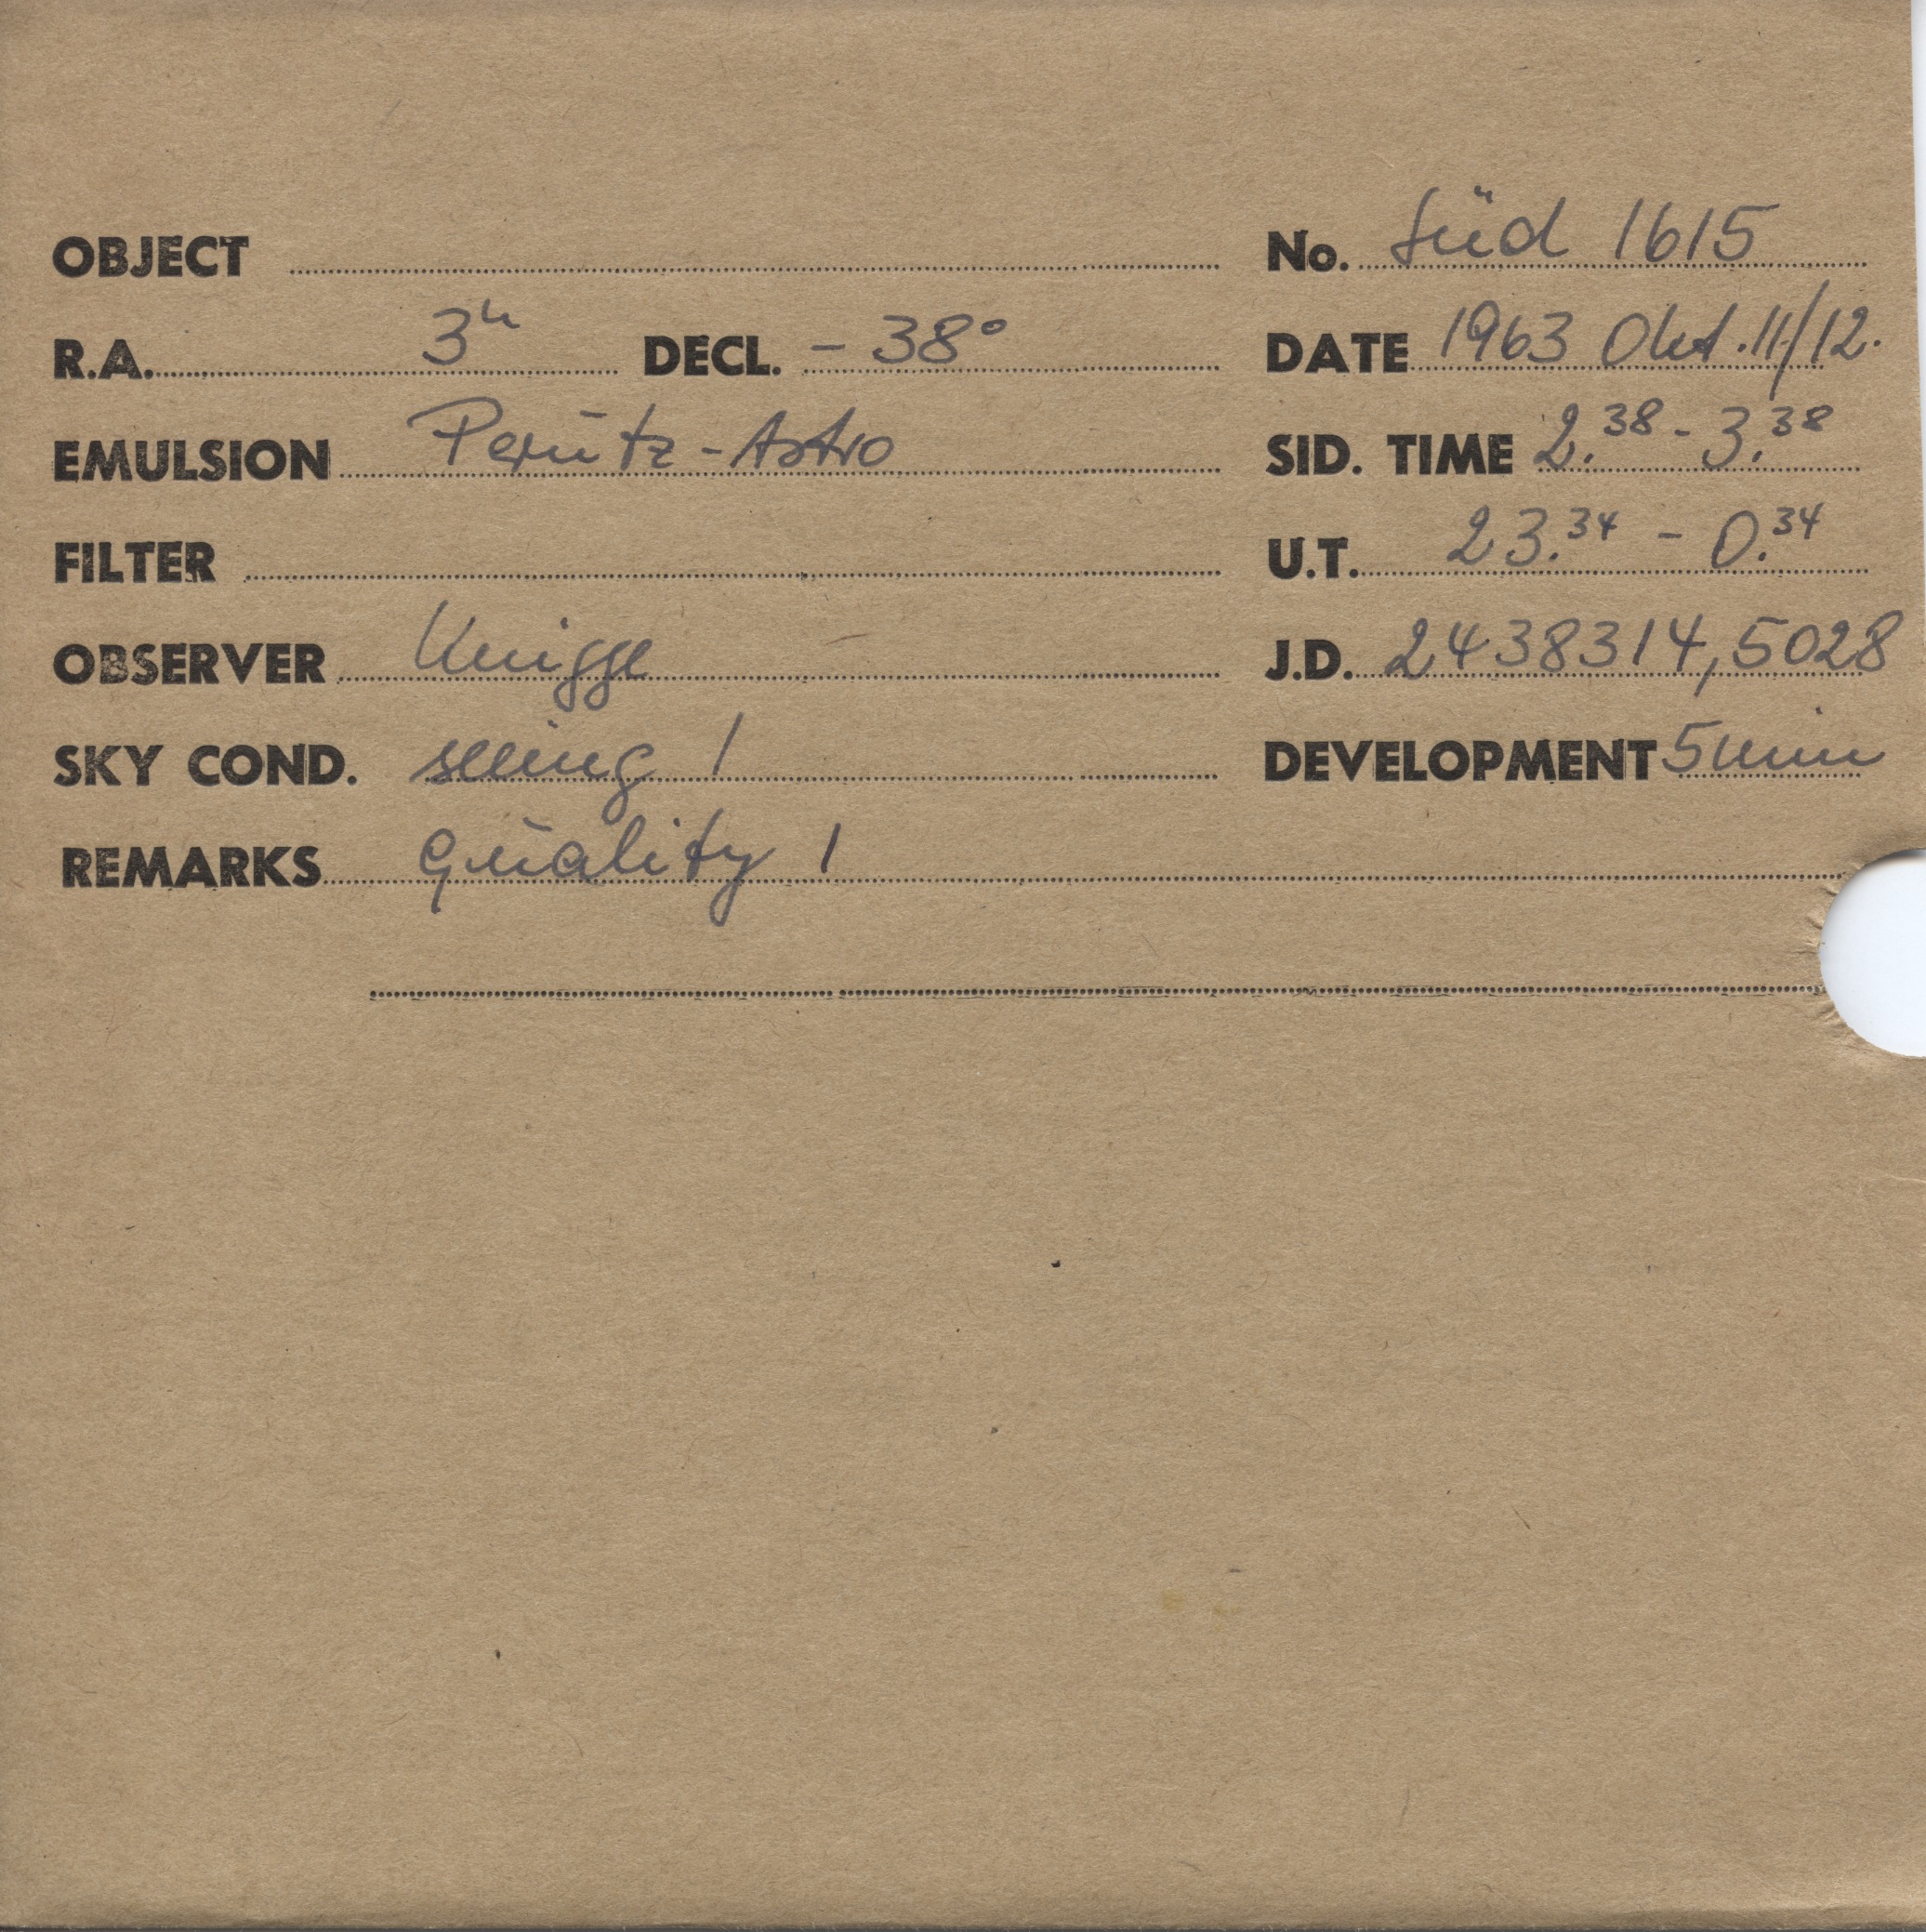 OBJECT No. Süd 1615
R.A. 3h DECL. - 38°
DATE 1963 Okt. 11/12.
EMULSION Perutz-Astro
SID. TIME 2.38 - 3.38
FILTER
U.T. 23.34 - 0.34
OBSERVER Knigge
J.D. 2438314,5028
SKY COND. seeing 1
DEVELOPMENT 5 min
REMARKS Quality 1